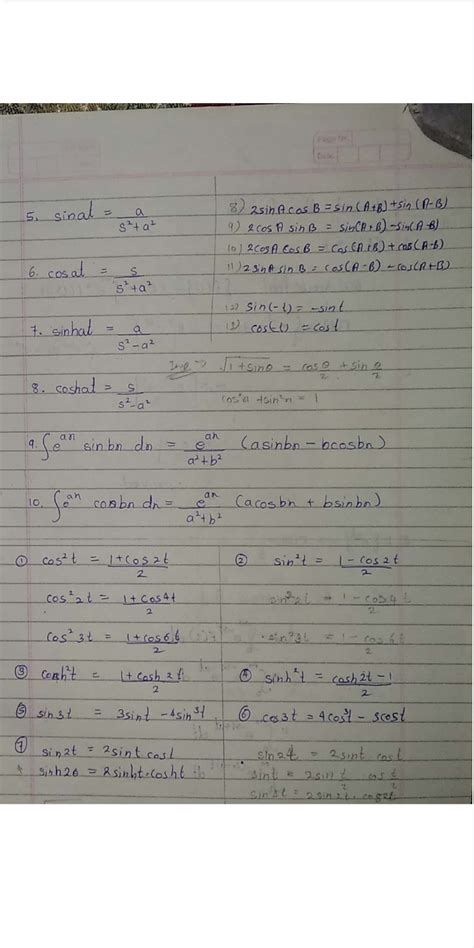 5. sinat = a / s²+a²
6. cosat = s / s²+a²
7. sinhat = a / s²-a²
8. coshat = s / s²-a²
8) 2sinA cosB = sin(A+B)+sin(A-B)
9) 2cosA sinB = sin(A+B)-sin(A-B)
10) 2cosA cosB = cos(A+B)+cos(A-B)
11) 2sinA sinB = cos(A-B)-cos(A+B)
12) sin(-t) = -sint
cos(-t) = cost
Imp → √1+sinθ = cos θ/2 + sin θ/2
9. ∫e^an sinbn dn = e^an / a²+b² (asinbn - bcosbn)
10. ∫e^an cosbn dn = e^an / a²+b² (acosbn + bsinbn)
① cos²t = 1+cos2t / 2
② sin²t = 1-cos2t / 2
cos²2t = 1+cos4t / 2
sin²2t = 1-cos4t / 2
cos²3t = 1+cos6t / 2
sin²3t = 1-cos6t / 2
③ cosh²t = 1+cosh2t / 2
④ sinh²t = cosh2t-1 / 2
⑤ sin3t = 3sint - 4sin³t
⑥ cos3t = 4cos³t - 3cost
⑦ sin2t = 2sint cost
sin2t = 2sint cost
sinh2θ = 2sinht·cosht
sint = 2sin t/2 cos t/2